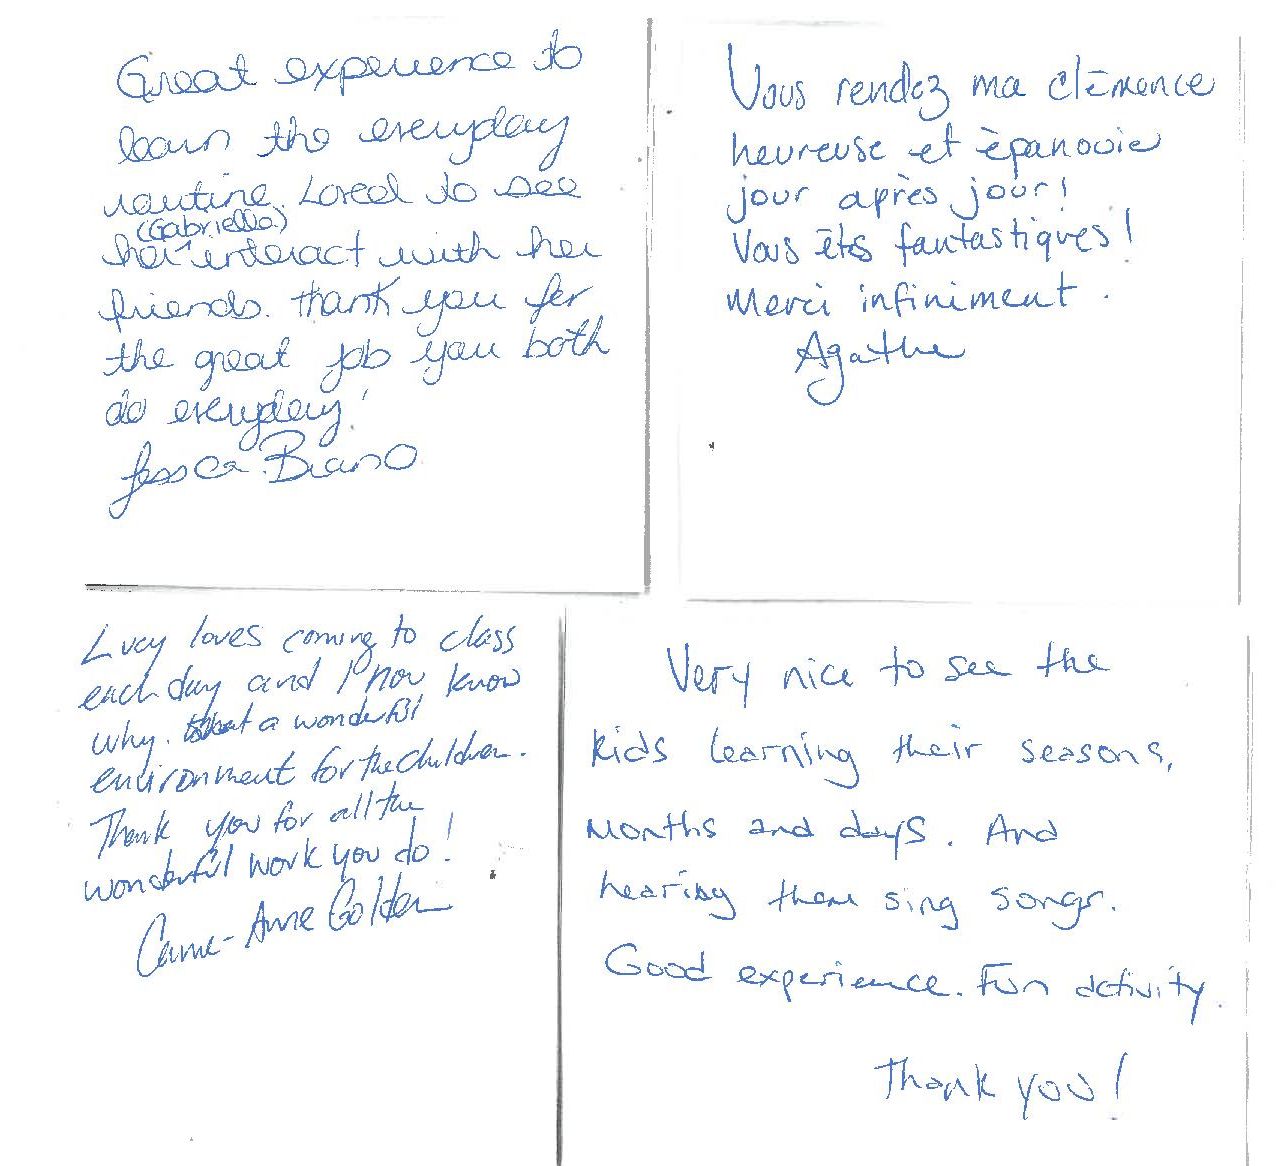 Great experience to
learn the everyday
routine. Loved to see
(Gabriella)
her interact with her
friends. Thank you for
the great job you both
do everyday!
Jessica
Vous rendez ma Clémence
heureuse et épanouie
jour après jour!
Vous êtes fantastiques!
Merci infiniment.
Agathe
Lucy loves coming to class
each day and I now know
why. What a wonderful
environment for the children.
Thank you for all the
wonderful work you do!
Anne Golden
Very nice to see the
kids learning their seasons,
months and days. And
hearing them sing songs.
Good experience. Fun activity.
Thank you!